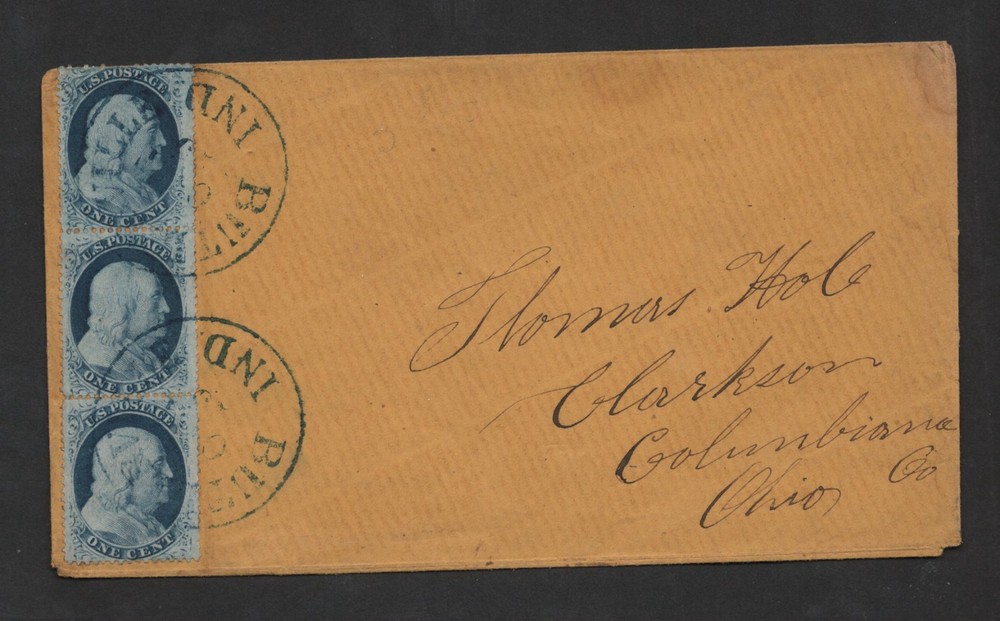 U.S. POSTAGE
ONE CENT
U.S. POSTAGE
ONE CENT
U.S. POSTAGE
ONE CENT
IND
IND
Thomas Hole
Clarkson
Columbiana
Co
Ohio